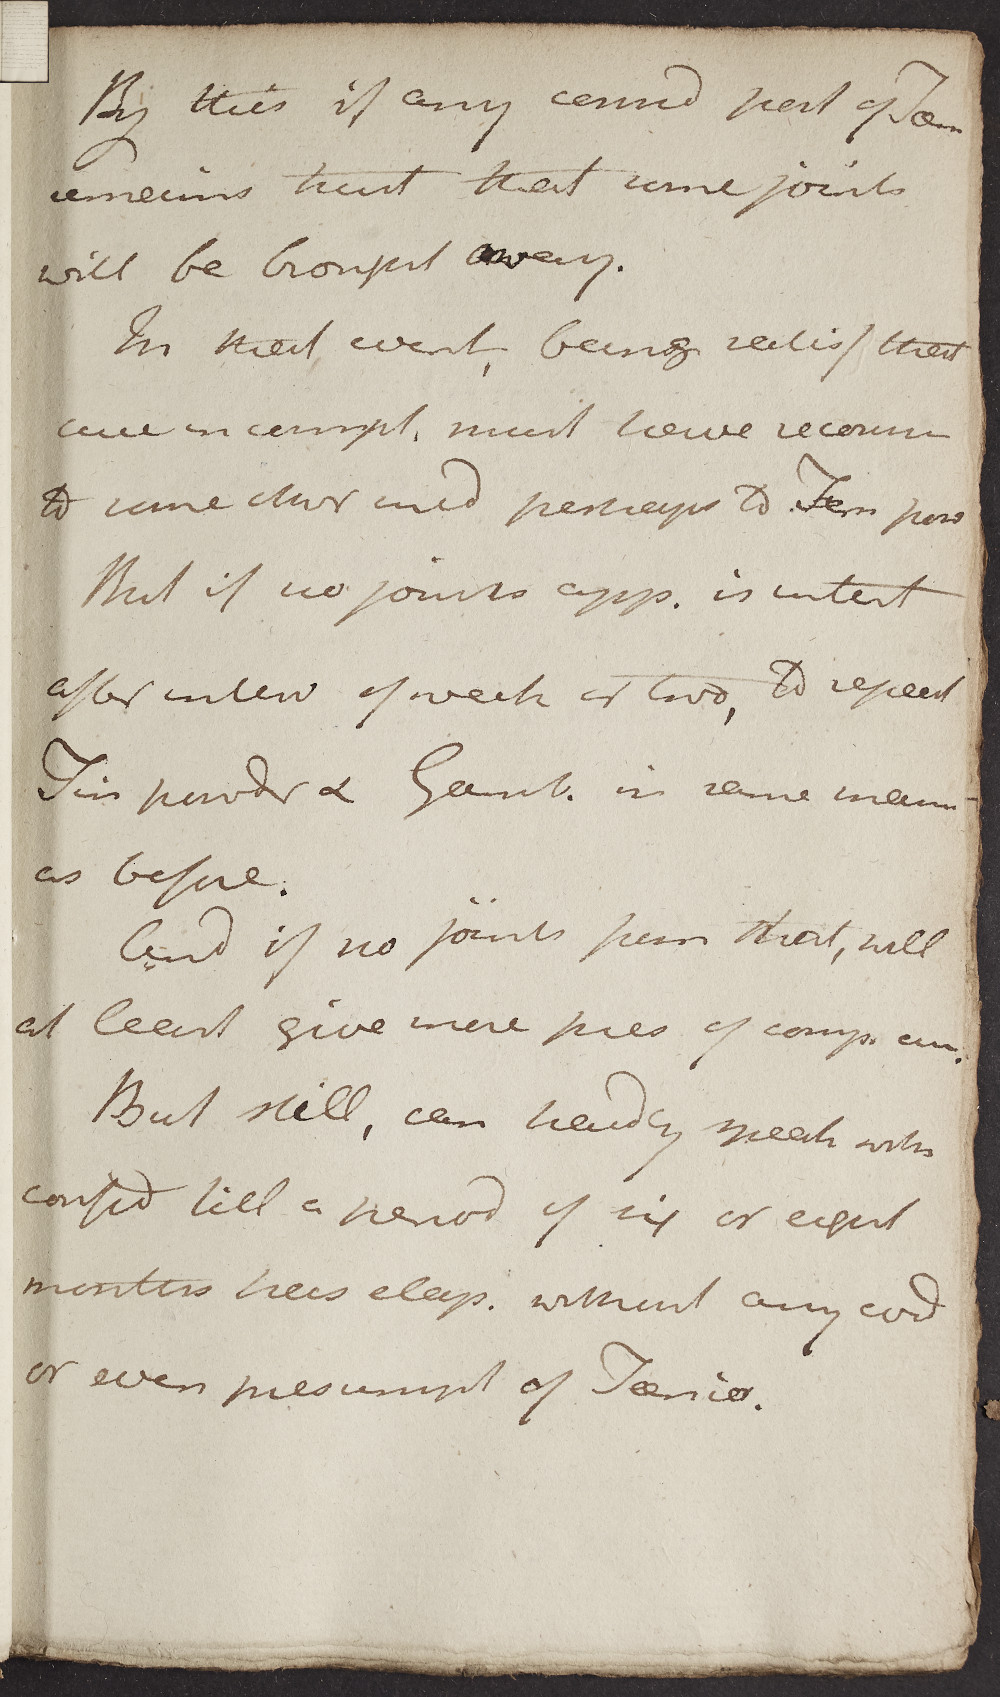 By this if any consid part of Tæn
remains trust that some joints
will be brought away.
In that event, being satisf that
cure incompt, must have recourse
to some other med perhaps to Fern pow
But if no joints app. is intent
after interv of week or two, to repeat
Tin powder & Gamb. in same mann
as before.
And if no joints from that, will
at least give more pres of comp. cur.
But still, can hardly speak with
confid till a period of six or eight
months has elap. without any evid
or even presumpt of Tænia.